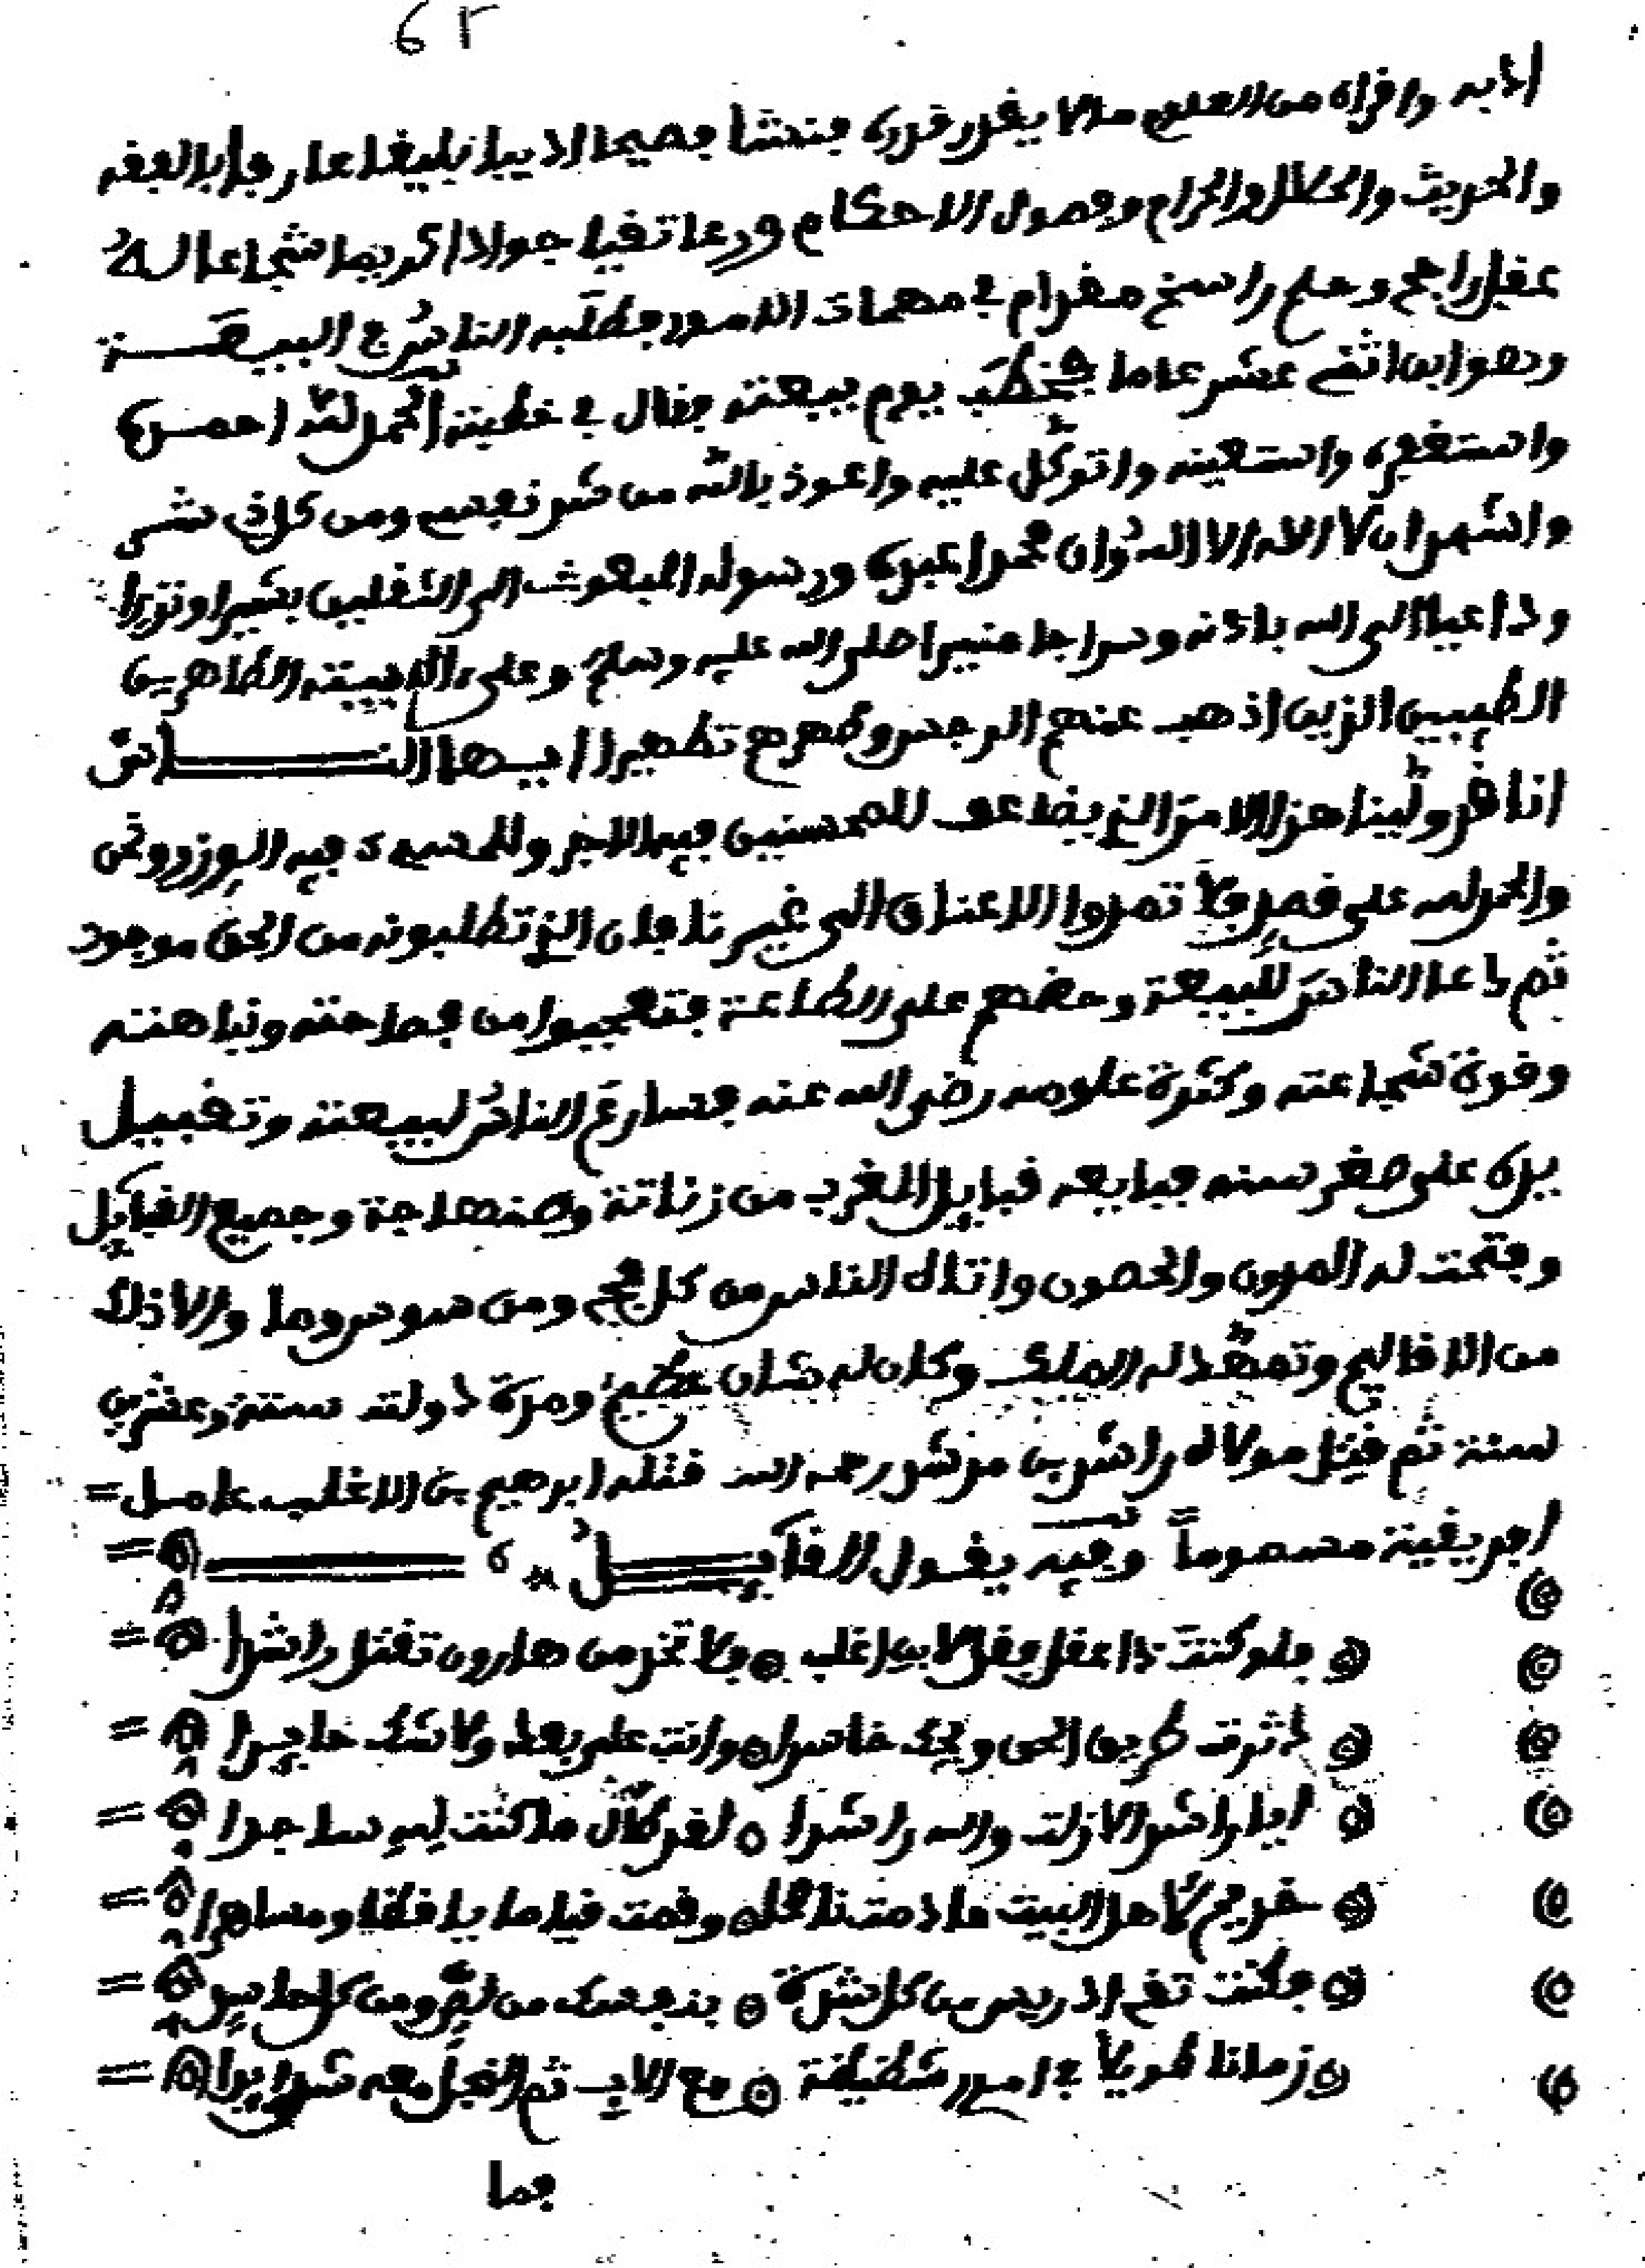 62
ادبه واقراه من العلوم ما لا يقدر قدره فنشأ فصيحا اديبا بليغا عارفا بالفقه
والحديث والحلال والحرام وفصول الاحكام ورعا تقيا جوادا كريما شجاعا له
عقل راجح وحلم راسخ مقدام في مهمات الامور فطلبه الناس في البيعة
وهو ابن اثنى عشر عاما فخطب يوم بيعته فقال في خطبته الحمد لله احمده
واستغفره واستعينه واتوكل عليه واعوذ بالله من شر نفسي ومن كل ذي شر
واشهد ان لا اله الا الله وان محمدا عبده ورسوله المبعوث الى الثقلين بشيرا ونذيرا
وداعيا الى الله باذنه وسراجا منيرا صلى الله عليه وسلم وعلى آل بيته الطاهرين
الطيبين الذين اذهب عنهم الرجس وطهرهم تطهيرا ايها الناس
انا قد ولينا هذا الامر الذي يضاعف للمحسنين فيه الاجر وللمسيء فيه الوزر ونحن
والحمد لله على قصد فلا تمدوا الاعناق الى غيرنا فان الذي تطلبونه من الحق موجود
ثم دعا الناس للبيعة وحضهم على الطاعة فتعجبوا من فصاحته ونباهته
وقوة شجاعته وكثرة علومه رضي الله عنه فسارع الناس لبيعته وتقبيل
يده على صغر سنه فبايعه قبايل المغرب من زناتة وصنهاجة وجميع القبايل
وفتحت له المدون والحصون واتاه الناس من كل فج ومن سوس وما والا ذلك
من الاقاليم وتمهد له الملك وكان له شان عظيم ومدة دولته ستة وعشرين
سنة ثم قتل مولاه راشد بن مرشد رحمه الله قتله ابرهيم بن الاغلب عامل
افريقية مسموما وفيه يقول القايل
فلو كنت ذا عقل فقل لابن اغلب ولا تخز من هارون تقتل راشدا
دثرت طريق الحق ويحك خاسرا وانت على بغداد ولا شك حايدا
ايا راشدا لا زلت والله راشدا لقد طال ما كنت لله ساجدا
خديم لاهل البيت ما دمت ناصحا وقمت قياما يا فطنا ومساهدا
فكنت تقي ادريس من كل شدة بنفسك من لص ومن كل حاسد
زمانا طويلا في امور شظيظة مع الاب ثم النجل معه شدايدا
فما